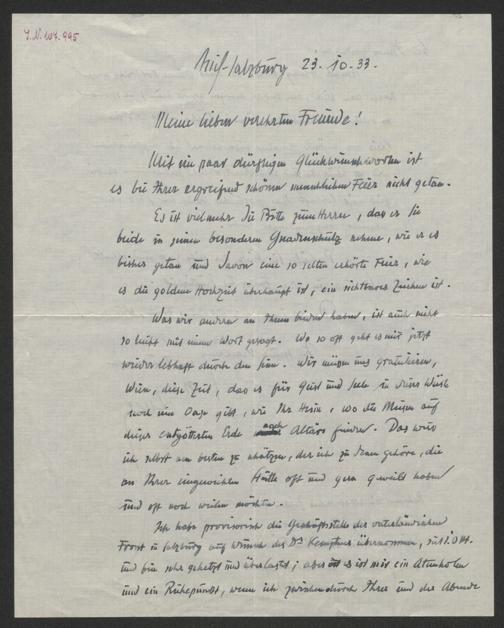 J.N. 164.995
Aigl-Salzburg 23.10.33.
Meine lieben verehrten Freunde!
Mit ein paar dürftigen Glückwunschworten ist
es bei Ihrer ergreifend schönen menschlichen Feier nicht getan.
Es ist vielmehr die Bitte zum Herrn, das er Sie
beide in seinen besonderen Gnadenschutz nehme, wie er es
bisher getan und davon eine so selten erhörte Feier, wie
es die goldene Hochzeit überhaupt ist, ein sichtbares Zeichen ist.
Was wir anderen an Ihnen haben, ist auch nicht
so leicht mit einem Wort gesagt. Wo so oft geht es mir jetzt
wieder lebhaft durch den Sinn. Wir müssen uns gratulieren,
Wien, diese Zeit, das es für Geist und Seele in dieser Wüste
noch eine Oase gibt, wie Ihr Heim, wo die Musen auf
dieser entgötterten Erde noch Altäre finden. Das weiss
ich selbst am besten zu schätzen, der ich zu denen gehöre, die
an Ihrer eingeweihten Stätte oft und gern geweilt haben
und oft noch weilen möchten.
Ich habe provisorisch die Geschäftsstelle der vaterländischen
Front in Salzburg auf Wunsch des Dr Kemptner übernommen, seit 1. Okt.
und bin sehr gehetzt und überlastet; aber es ist mir ein Atemholen
und ein Ruhepunkt, wenn ich zwischendurch Ihrer und der Abende